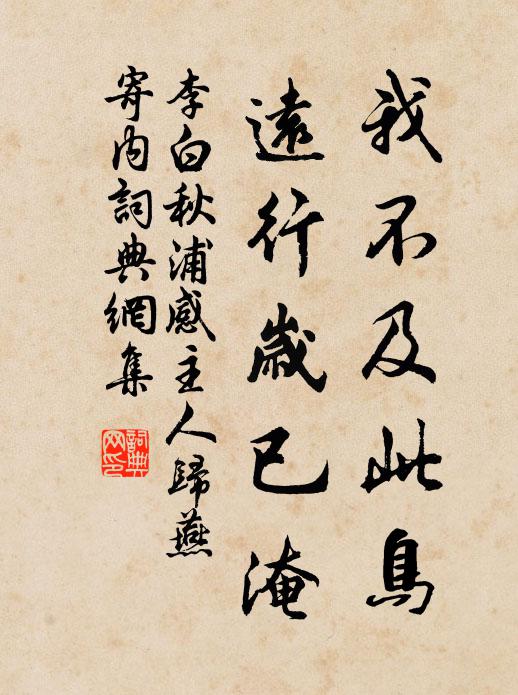 我不及此鳥
遠行歲已淹
李白秋浦感主人歸燕
寄内詞典網集
詞典
网印